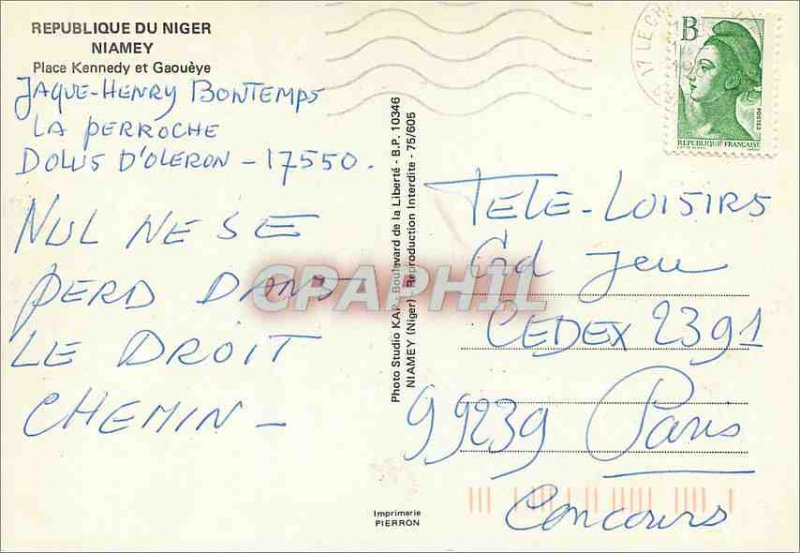 REPUBLIQUE DU NIGER
NIAMEY
Place Kennedy et Gaouèye
JAQUE-HENRY BONTEMPS
LA PERROCHE
DOLUS D'OLERON - 17550.
NUL NE SE
PERD DANS
LE DROIT
CHEMIN -
Photo Studio KAP - Boulevard de la Liberté - B.P. 10346
NIAMEY (Niger) - Reproduction Interdite - 75/605
Imprimerie
PIERRON
17 LE CH
B
POSTES
REPUBLIQUE FRANÇAISE
TELE-LOISIRS
Gd Jeu
CEDEX 2391
99239 Paris
Concours
CPAPHIL